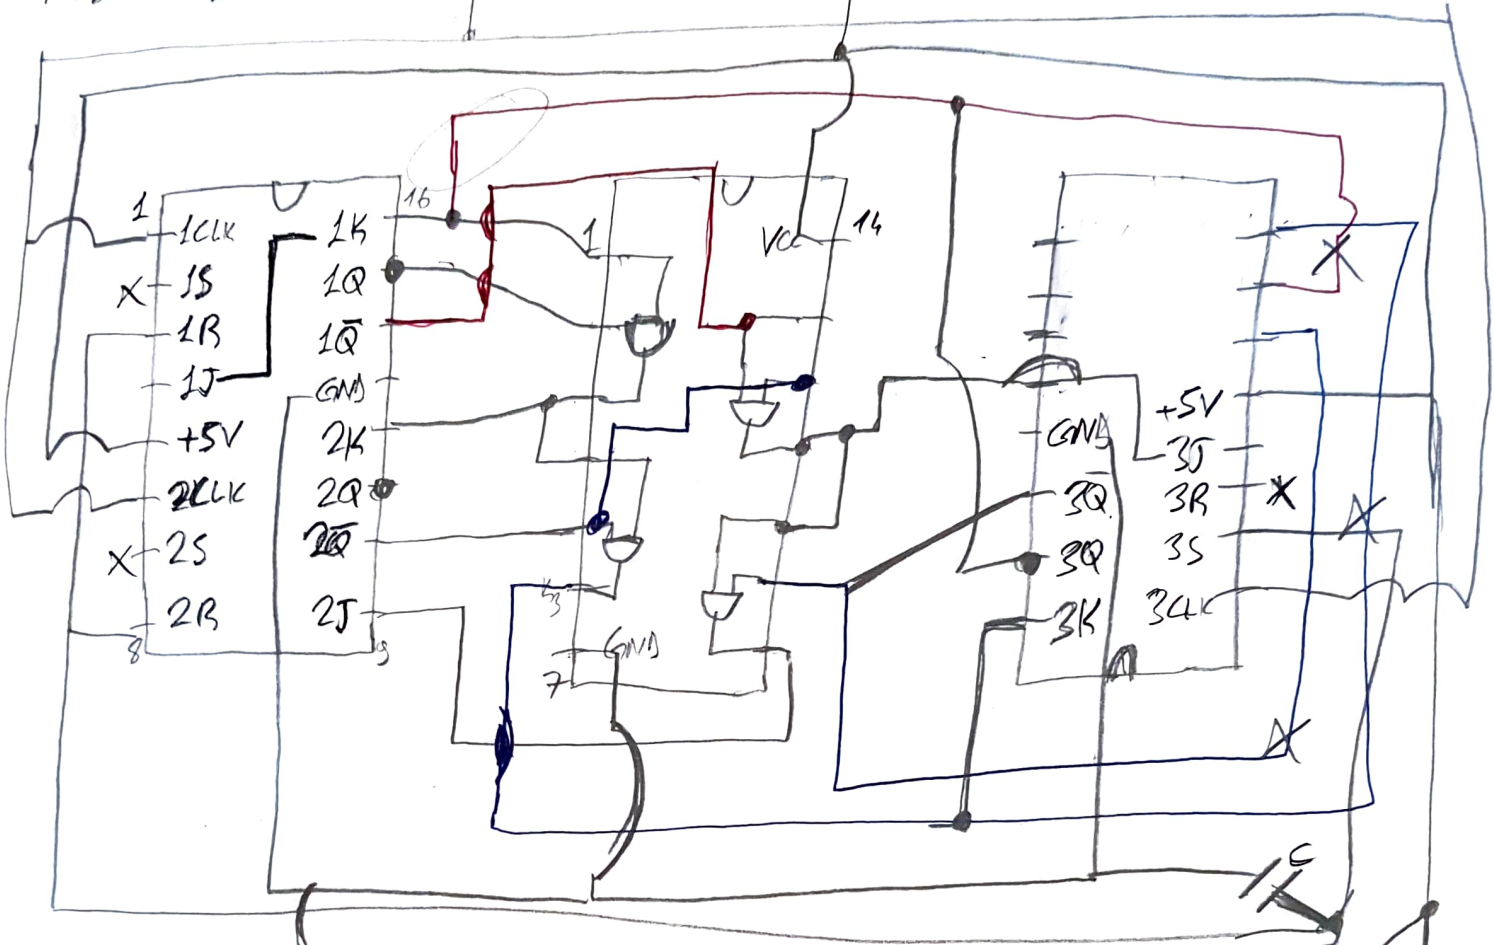 1
1CLK
X 1S
1R
1J
+5V
2CLK
X 2S
2R
8
16
1K
1Q
1Q̄
GND
2K
2Q
2Q̄
2J
9
1
VCC
14
GND
7
GND
3Q̄
3Q
3K
X
+5V
3J
3R X
3S X
3CLK
X
C